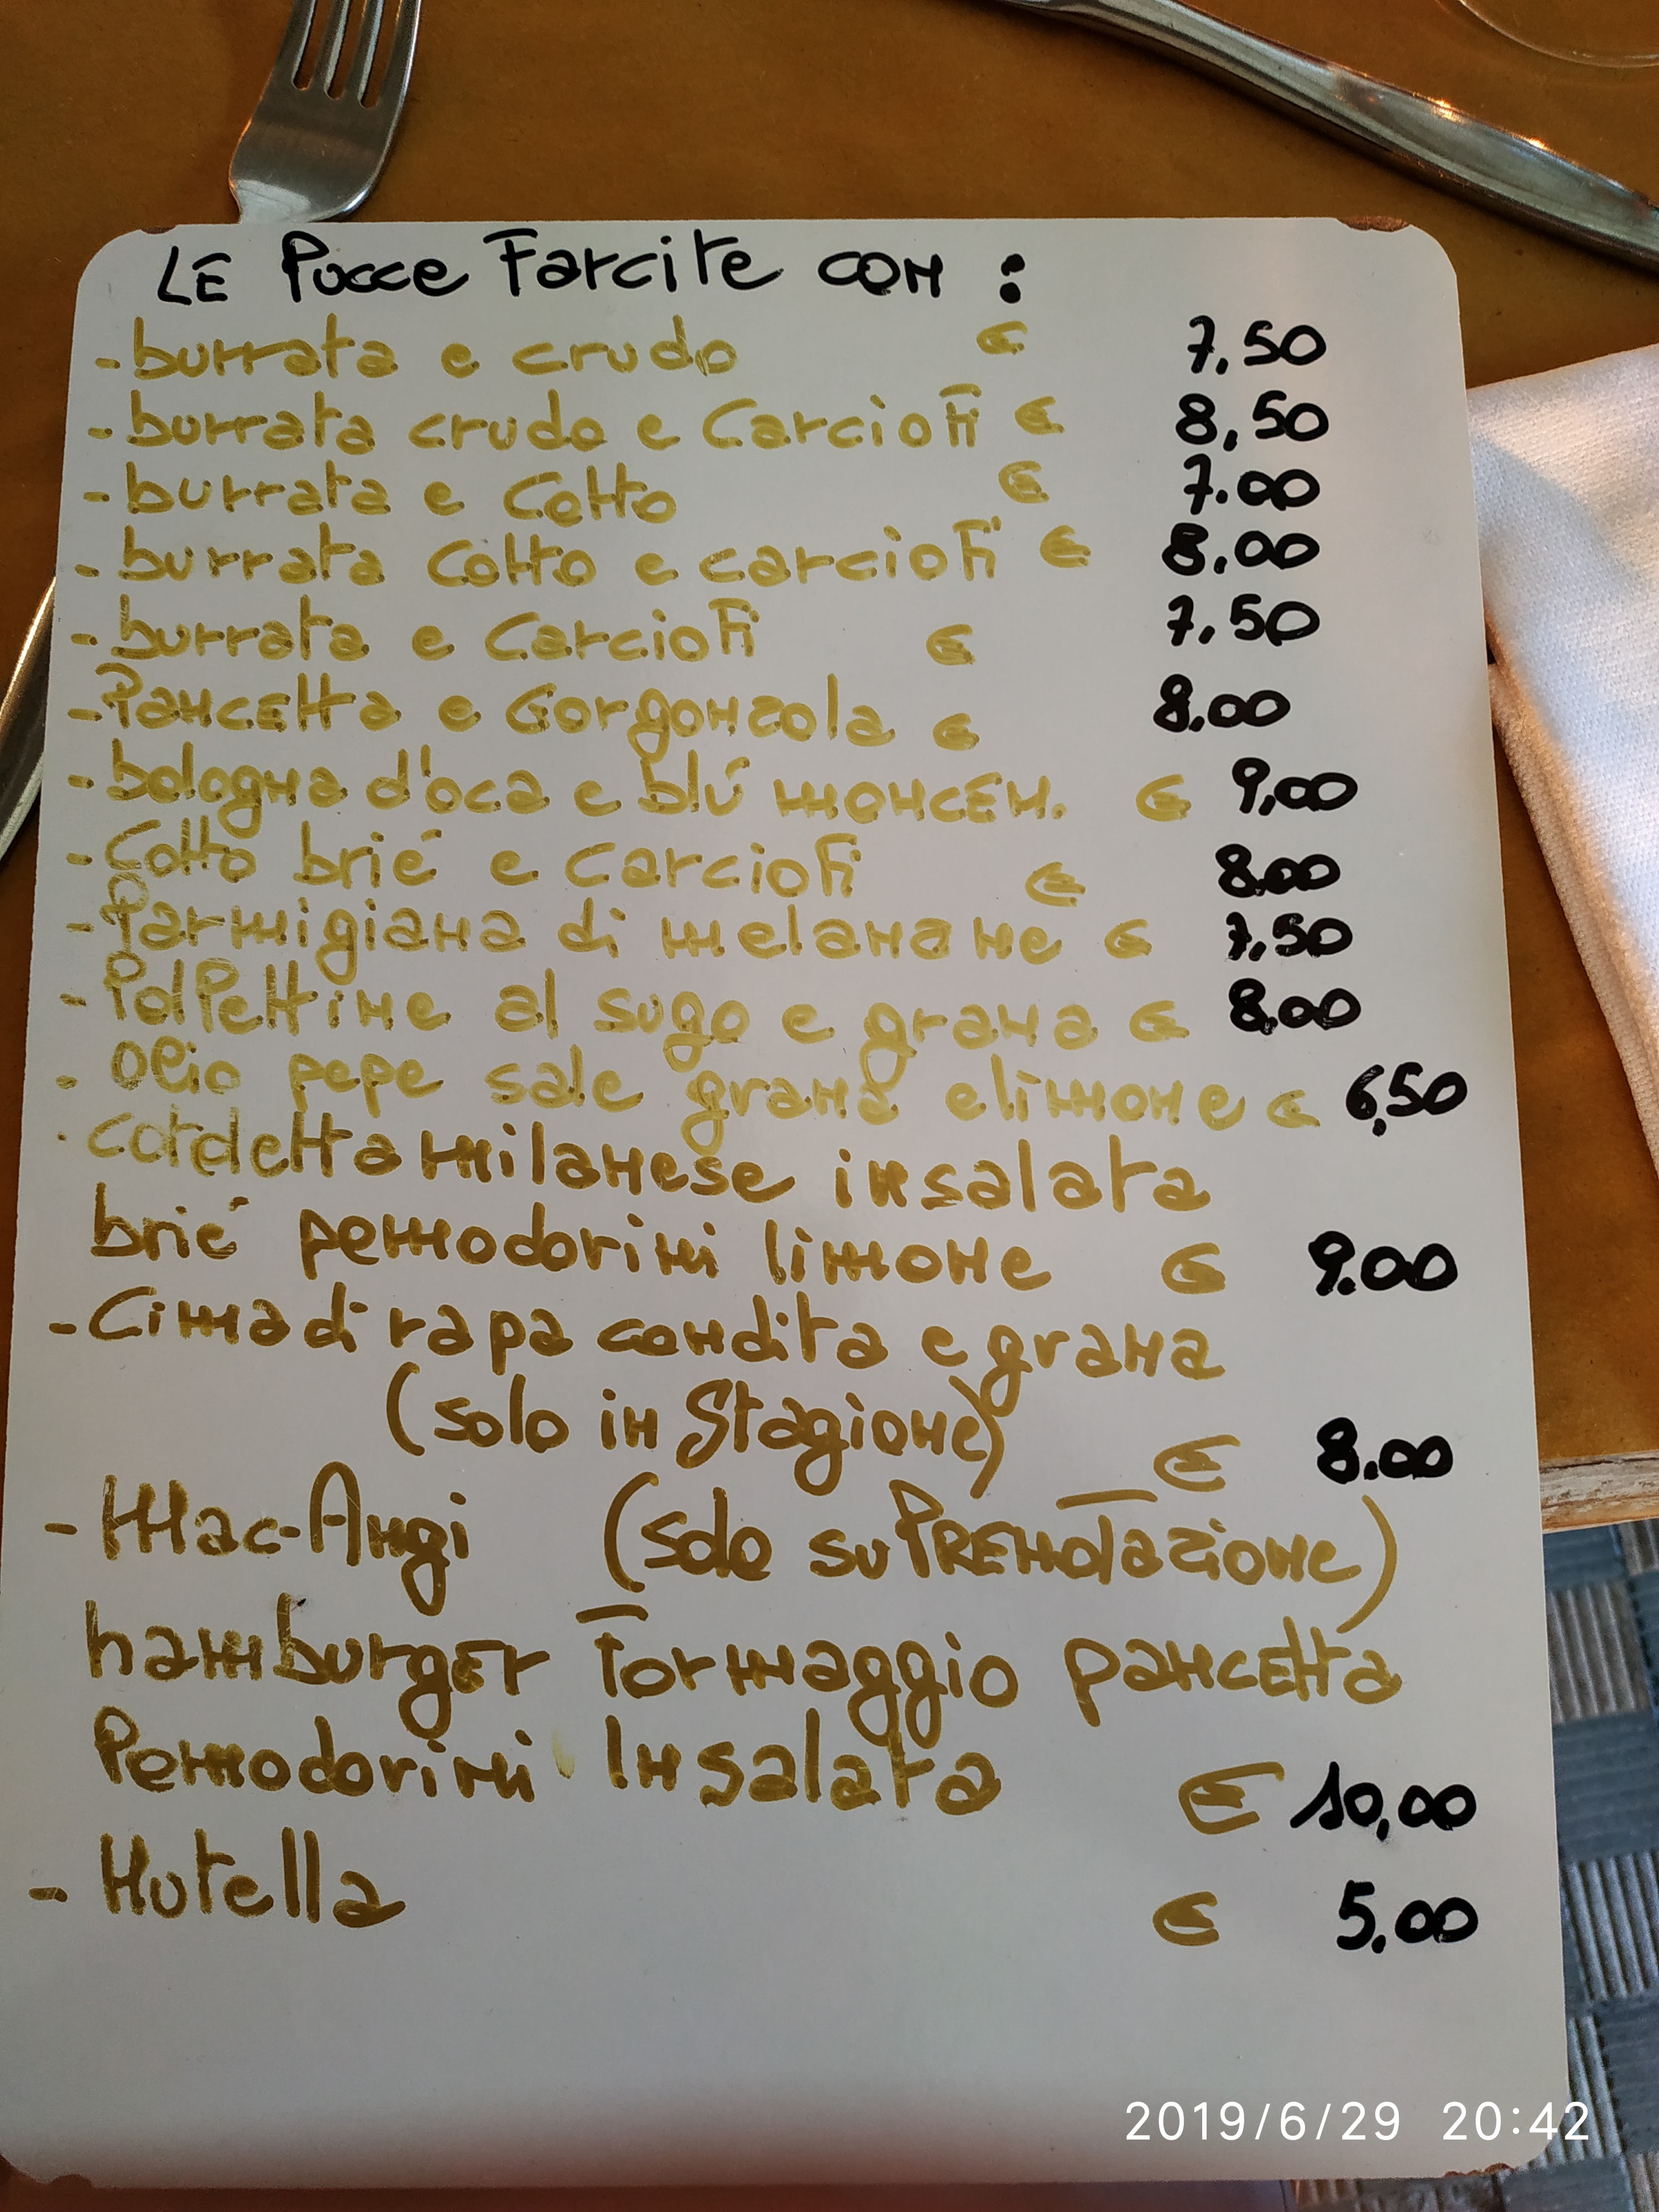 LE Pucce Farcite con :
- burrata e crudo € 7,50
- burrata crudo e Carciofi € 8,50
- burrata e Cotto € 7.00
- burrata Cotto e carciofi € 8.00
- burrata e Carciofi € 7,50
- Pancetta e Gorgonzola € 8.00
- bologna d'oca e blú moncen. € 9,00
- Cotto brié e carciofi € 8.00
- Parmigiana di melanzane € 7,50
- Polpettine al sugo e grana € 8,00
- olio pepe sale grana e limone € 6,50
- cotoletta milanese insalata
brié pomodorini limone € 9.00
- Cima di rapa condita e grana
(solo in Stagione) € 8.00
- Mac-Angi (solo su PRENOTazione)
hamburger Formaggio pancetta
Pomodorini Insalata € 10,00
- Nutella € 5,00
2019/6/29 20:42